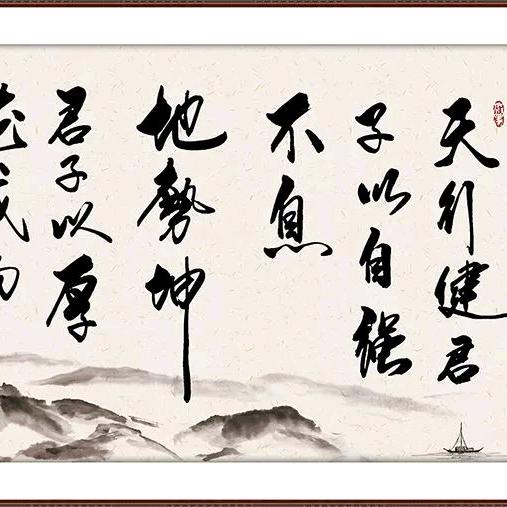 天行健君
子以自强
不息
地勢坤
君子以厚